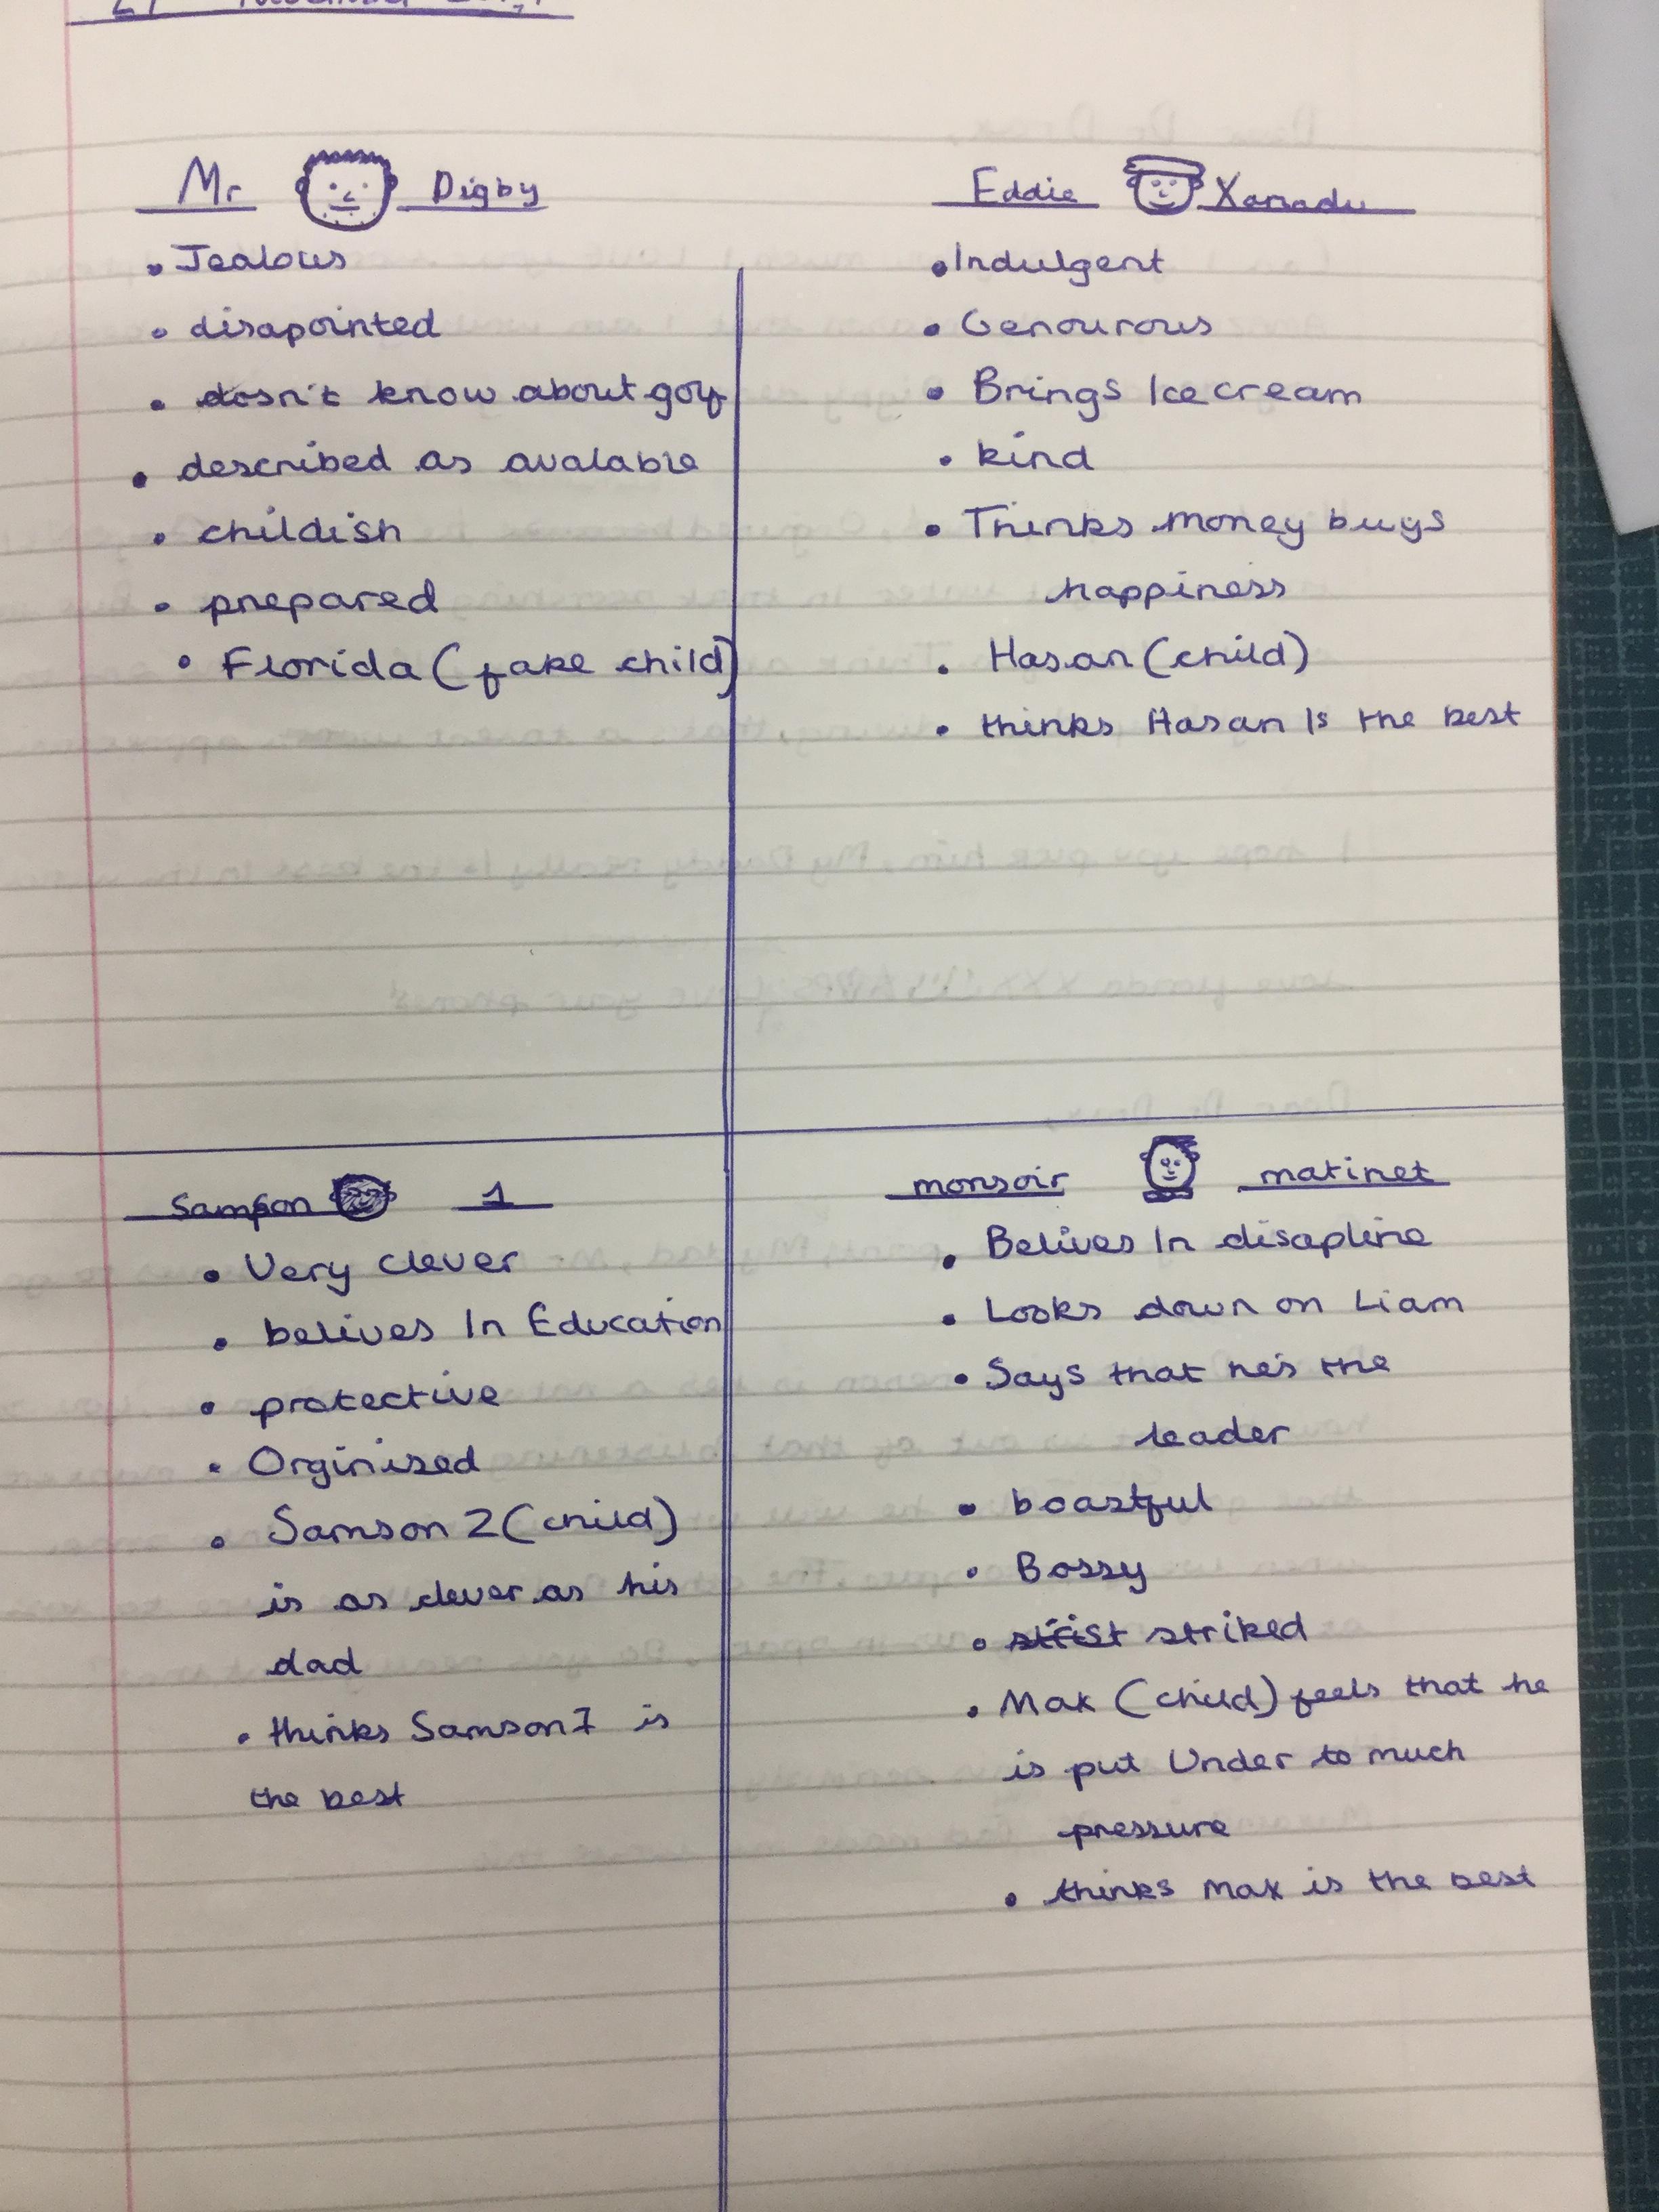 Mr Digby
• Jealous
• disapointed
• dosn't know about golf
• described as avalable
• childish
• prepared
• Florida (fake child)
Eddie Xanadu
• Indulgent
• Genourous
• Brings Ice cream
• kind
• Thinks money buys
happiness
• Hasan (child)
• thinks Hasan Is the best
Samson 1
• Very clever
• belives In Education
• protective
• Orginised
• Samson 2 (child)
is as clever as his
dad
• thinks Samson is
the best
monsoir matinet
• Belives In disapline
• Looks down on Liam
• Says that he's the
leader
• boastful
• Bossy
• striked
• Max (child) feels that he
is put Under to much
pressure
• thinks max is the best